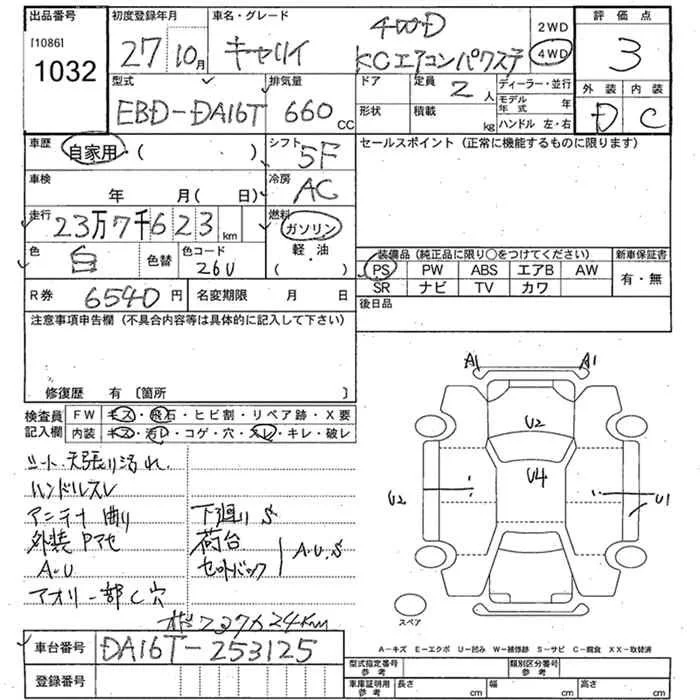 出品番号
[1086]
1032
初度登録年月
27 10月
車名・グレード
キャリイ
4WD
KCエアコンパワステ
2WD
4WD
評価点
3
外装 内装
D C
型式
EBD-DA16T
排気量
660 CC
ドア
定員
2 人
ディーラー・並行
モデル年式 年
形状
積載
kg
ハンドル 左・右
車歴
自家用・( )
シフト
5F
セールスポイント(正常に機能するものに限ります)
車検
年 月( 日)
冷房
AC
走行
23万7千623km
燃料
ガソリン
軽・油
( )
色
白
色替
色コード
26U
装備品(純正品に限り○をつけてください)
新車保証書
PS PW ABS エアB AW
SR ナビ TV カワ
有・無
R券
6540円
名変期限 月 日
後日品
注意事項申告欄(不具合内容等は具体的に記入して下さい)
修復歴 有〔箇所 〕
検査員
記入欄
FW キズ・飛石・ヒビ割・リペア跡・X要
内装 キズ・汚レ・コゲ・穴・スレ・キレ・破レ
シート・天張り汚れ
ハンドルスレ
アンテナ曲り
外装Pマセ
A・U
アオリ一部C穴
下廻りS
荷台
セットバック
A・U・S
237624km
A1 A1
U2
U4
U2
U1
スペア
A-キズ E-エクボ U-凹み W-補修跡 S-サビ C-腐食 XX-取替済
車台番号
DA16T-253125
登録番号
型式指定番号
参考
類別区分番号
参考
車庫証明用
参考
長さ cm
幅 cm
高さ cm